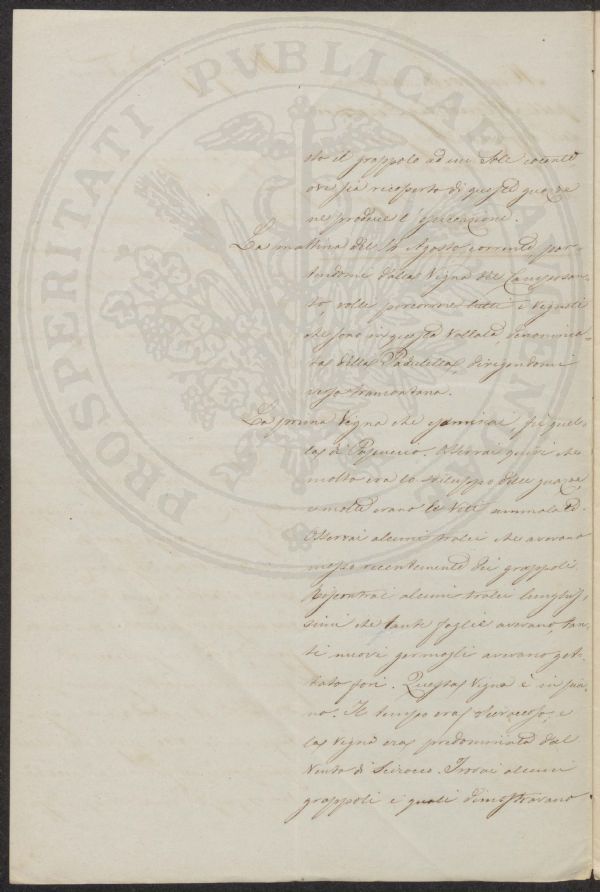 PROSPERITATI PVBLICAE AVGENDAE
sto il grappolo ad un Sole cocente
ove sia ricoperto di queste
ne produce l'
La mattina del Agosto corrente, par-
tendomi dalla Vigna del Camposan-
to, volli percorrere tutti i Vigneti
che sono in questa Vallata denomina-
ta della Paduletta, dirigendomi
verso tramontana.
La prima Vigna che esaminai, fu quel-
la di Osservai quivi che
molto era lo sviluppo delle
e molte erano le Viti ammalate.
Osservai alcuni tralci che avevano
messo recentemente dei grappoli.
Riscontrai alcuni tralci lunghis-
simi che tante foglie avevano, tan-
ti nuovi germogli avevano get-
tato fori. Questa Vigna è in pia-
no. Il tempo era e
la Vigna era predominata dal
Vento di Scirocco. Trovai alcuni
grappoli i quali dimostravano